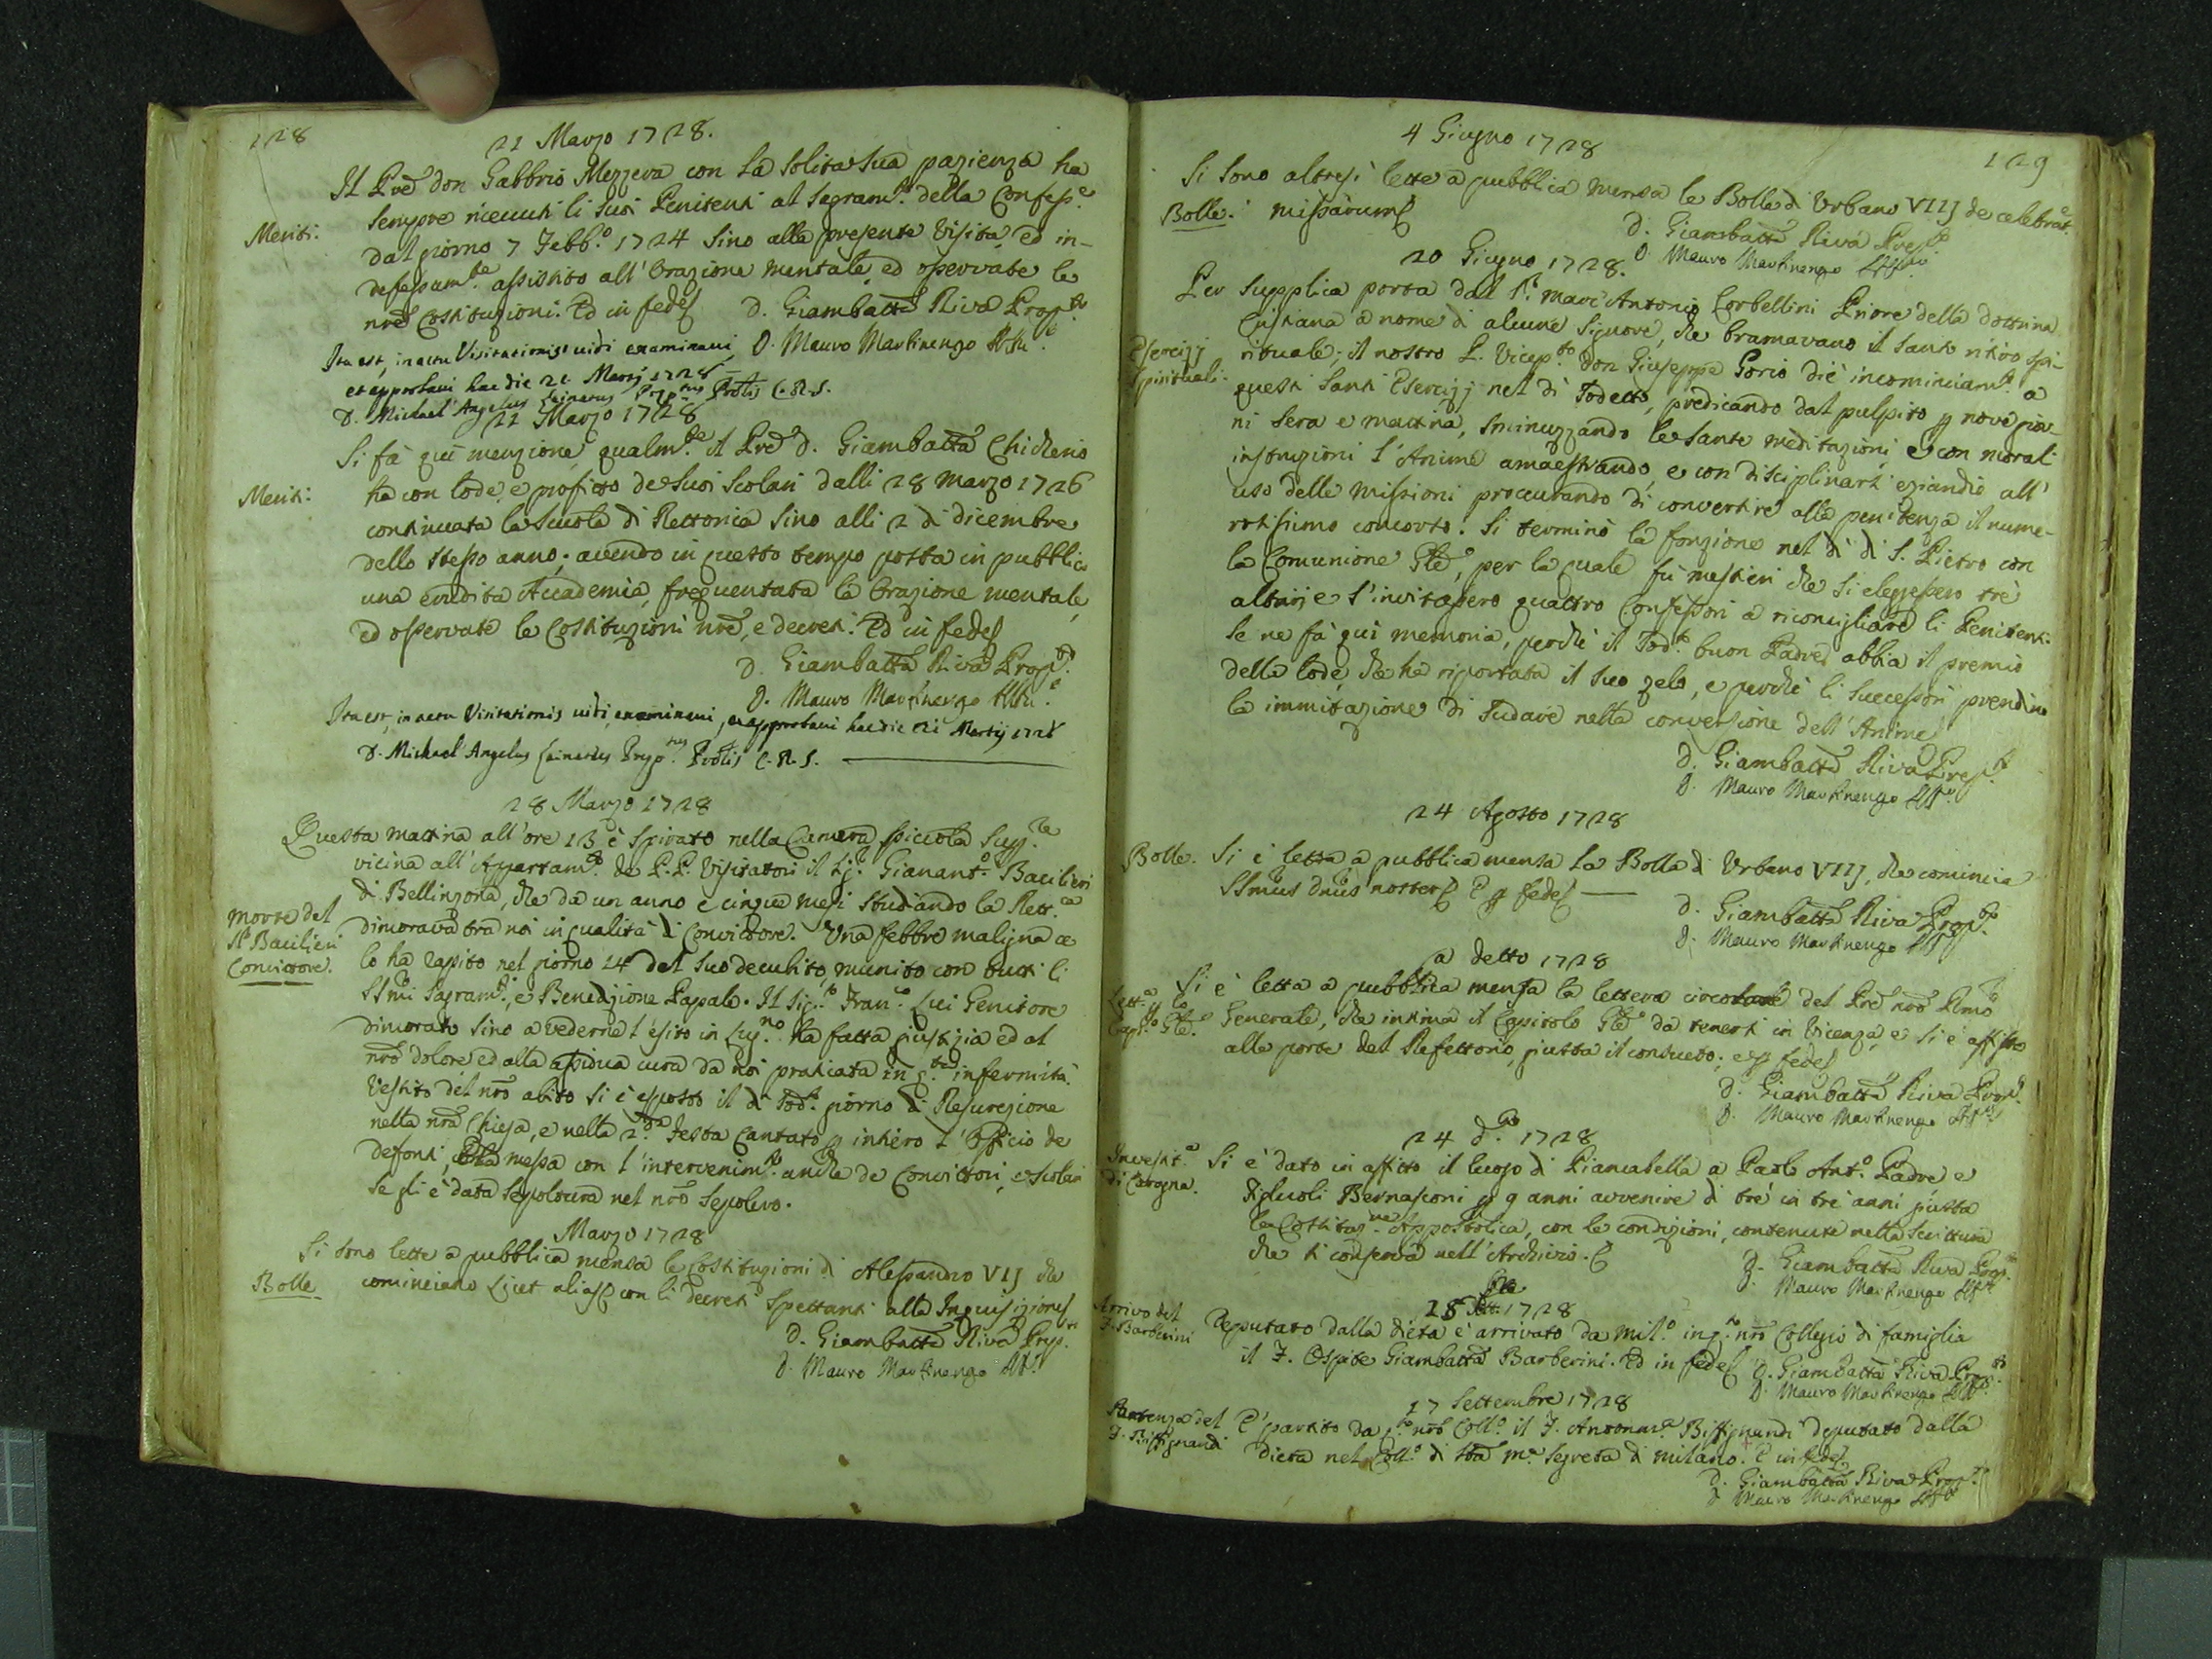 128
21 Marzo 1728.
Il Pre don Gabbrio Mezzera con la solita sua pazienza ha
Meriti:
sempre ricevuti li suoi Penitenti al Sagram.to della Confess.e
dal giorno 7 Febb.o 1724 sino alla presente Visita, ed in-
defessam.te assistito all'Orazione mentale, ed osservate le
nre Costituzioni. Ed in fede
D. Giambatta Riva Prep.to
D. Mauro Martinengo Att.o
Ita est, in actu Visitationis vidi examinavi
et approbavi hac die 21 Martij 1728
D. Michael Angelus Prep.tus Prolis C. R. S.
21 Marzo 1728
Si fà qui menzione qualm.te il Pre D. Giambatta Chicherio
Meriti:
ha con lode, e profitto de suoi Scolari dalli 28 Marzo 1726
continuata la Scuola di Rettorica sino alli 2 di dicembre
dello stesso anno; avendo in questo tempo posta in pubblico
una erudita Accademia, frequentata la Orazione mentale,
ed osservate le Costituzioni nre, e decreti. Ed in fede
D. Giambatta Riva Prep.to
D. Mauro Martinengo Att.o
Ita est, in actu Visitationis vidi, examinavi, et approbavi hac die 21 Martij 1728
D. Michael Angelus Prep.tus Prolis C. R. S.
28 Marzo 1728
Questa mattina all'ore 13 è spirato nella Camera piccola sup.re
vicina all'Appartam.to de P.P. Visitatori il Sig.r Gianant.o Bacilieri
di Bellinzona, che da un anno e cinque mesi studiando la Rett.ca
Morte del
Sr Bacilieri
Convittore.
dimorava tra noi in qualità di Convittore. Una febbre maligna
lo ha rapito nel giorno 14 del suo decubito, munito con tutti li
SSmi Sagram.ti, e Benedizione Papale. Il Sig.r Fran.co Genitore
dimorato sino a vederne l'esito in Lug.no ha fatta giustizia ed al
nro dolore ed alla assidua cura da noi praticata in q.ta infermità.
Vestito del nro abito si è esposto il dì sod.o giorno di Resurezione
nella nra Chiesa, e nella 2.da festa cantato p intiero l'Officio de
defonti, colla messa con l'intervenim.to anche de Convittori, e Scolari
se gli è data sepoltura nel nro Sepolcro.
Marzo 1728
Si sono lette a pubblica mensa le Costituzioni di Alessandro VIJ che
Bolle
cominciano Licet alias con li decreti spettanti alla Inquisizione
D. Giambatta Riva Prep.to
D. Mauro Martinengo Att.o
129
4 Giugno 1728
Si sono altresì lette a pubblica mensa le Bolle di Urbano VIIJ de celebrat.e
Bolle. missarum
D. Giambatta Riva Prep.to
D. Mauro Martinengo Att.o
20 Giugno 1728.
Per supplica porta dal S.r Marc'Antonio Corbellini Priore della dottrina
Cristiana a nome di alcune Signore, che bramavano il santo ritiro spi-
Esercizj
Spirituali.
rituale; il nostro P. Vicep.to Don Giuseppe Gorio diè incominciam.to a
questi santi Esercizj nel dì sodetto, predicando dal pulpito p nove gior-
ni sera e mattina, sminuzzando le sante meditazioni, e con morali
instruzioni l'Anime amaestrando, e con disciplinarsi eziandio all'
uso delle missioni proccurando di convertire alla penitenza il nume-
rosissimo concorso. Si terminò la fonzione nel dì di S. Pietro con
la Comunione Gle, per la quale fù mestieri che si elegessero trè
altari, e s'invitassero quattro Confessori a riconcigliare li Penitenti.
Se ne fà qui memoria, perchè il sod.o buon Padre abbia il premio
della lode, che ha riportata il suo zelo, e perchè li successori prendino
la immitazione di sudare nella conversione dell'Anime
D. Giambatta Riva Prep.to
D. Mauro Martinengo Att.o
24 Agosto 1728
Bolle. Si è letta a pubblica mensa la Bolla di Urbano VIIJ, che comincia
SSmus Dnus noster E p fede
D. Giambatta Riva Prep.to
D. Mauro Martinengo Att.o
a detto 1728
Si è letta a pubblica mensa la lettera circolare del Pre nro Rmo
Lett.a
p lo
Cap.o Gle.
Generale, che intima il Capitolo Gle da tenersi in Vicenza, e si è affissa
alle porte del Refettorio, giusta il consueto; e p fede
D. Giambatta Riva Prep.to
D. Mauro Martinengo Att.o
24 d.o 1728
Invest.a
di Coregna.
Si è dato in affitto il luogo di Piancabella a Paolo Ant.o Padre e
figluoli Bernasconi p 9 anni avvenire di trè in trè anni giusta
la Costituz.ne Appostolica, con le condizioni, contenute nella Scrittura
che si conserva nell'Archivio.
D. Giambatta Riva Prep.to
D. Mauro Martinengo Att.o
28 1728
Arrivo del
F. Barberini
Deputato dalla dieta è arrivato da Mil.o in q.to nro Collegio di famiglia
il F. Ospite Giambatta Barberini. Ed in fede
D. Giambatta Riva Prep.to
D. Mauro Martinengo Att.o
17 Settembre 1728
Partenza del
F. Biffignandi
E' partito da q.to nro Coll.o il F. Antonm.a Biffignandi deputato dalla
dieta nel Coll.o di Sta M.a Segreta di Milano. E in fede
D. Giambatta Riva Prep.to
D. Mauro Martinengo Att.o